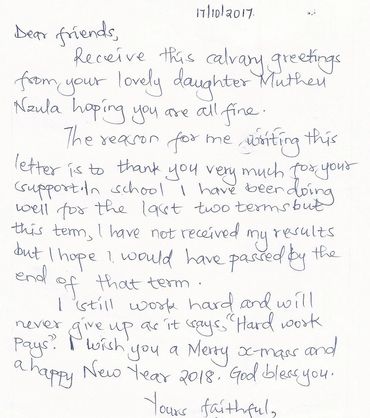 17/10/2017.
Dear friends,
Receive this calvary greetings
from your lovely daughter Mutheu
Nzula hoping you are all fine.
The reason for me writing this
letter is to thank you very much for your
support. In school I have been doing
well for the last two terms but
this term, I have not received my results
but I hope I would have passed by the
end of that term.
I still work hard and will
never give up as it says, "Hard work
Pays". I wish you a Merry x-mass and
a happy New Year 2018. God bless you.
Yours faithful,